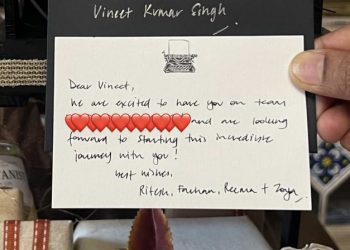 Vineet Kumar Singh
Dear Vineet,
We are excited to have you on team
❤️❤️❤️❤️❤️❤️❤️❤️ and are looking
forward to starting this incredible
journey with you!
best wishes,
Ritesh, Farhan, Reema + Zoya